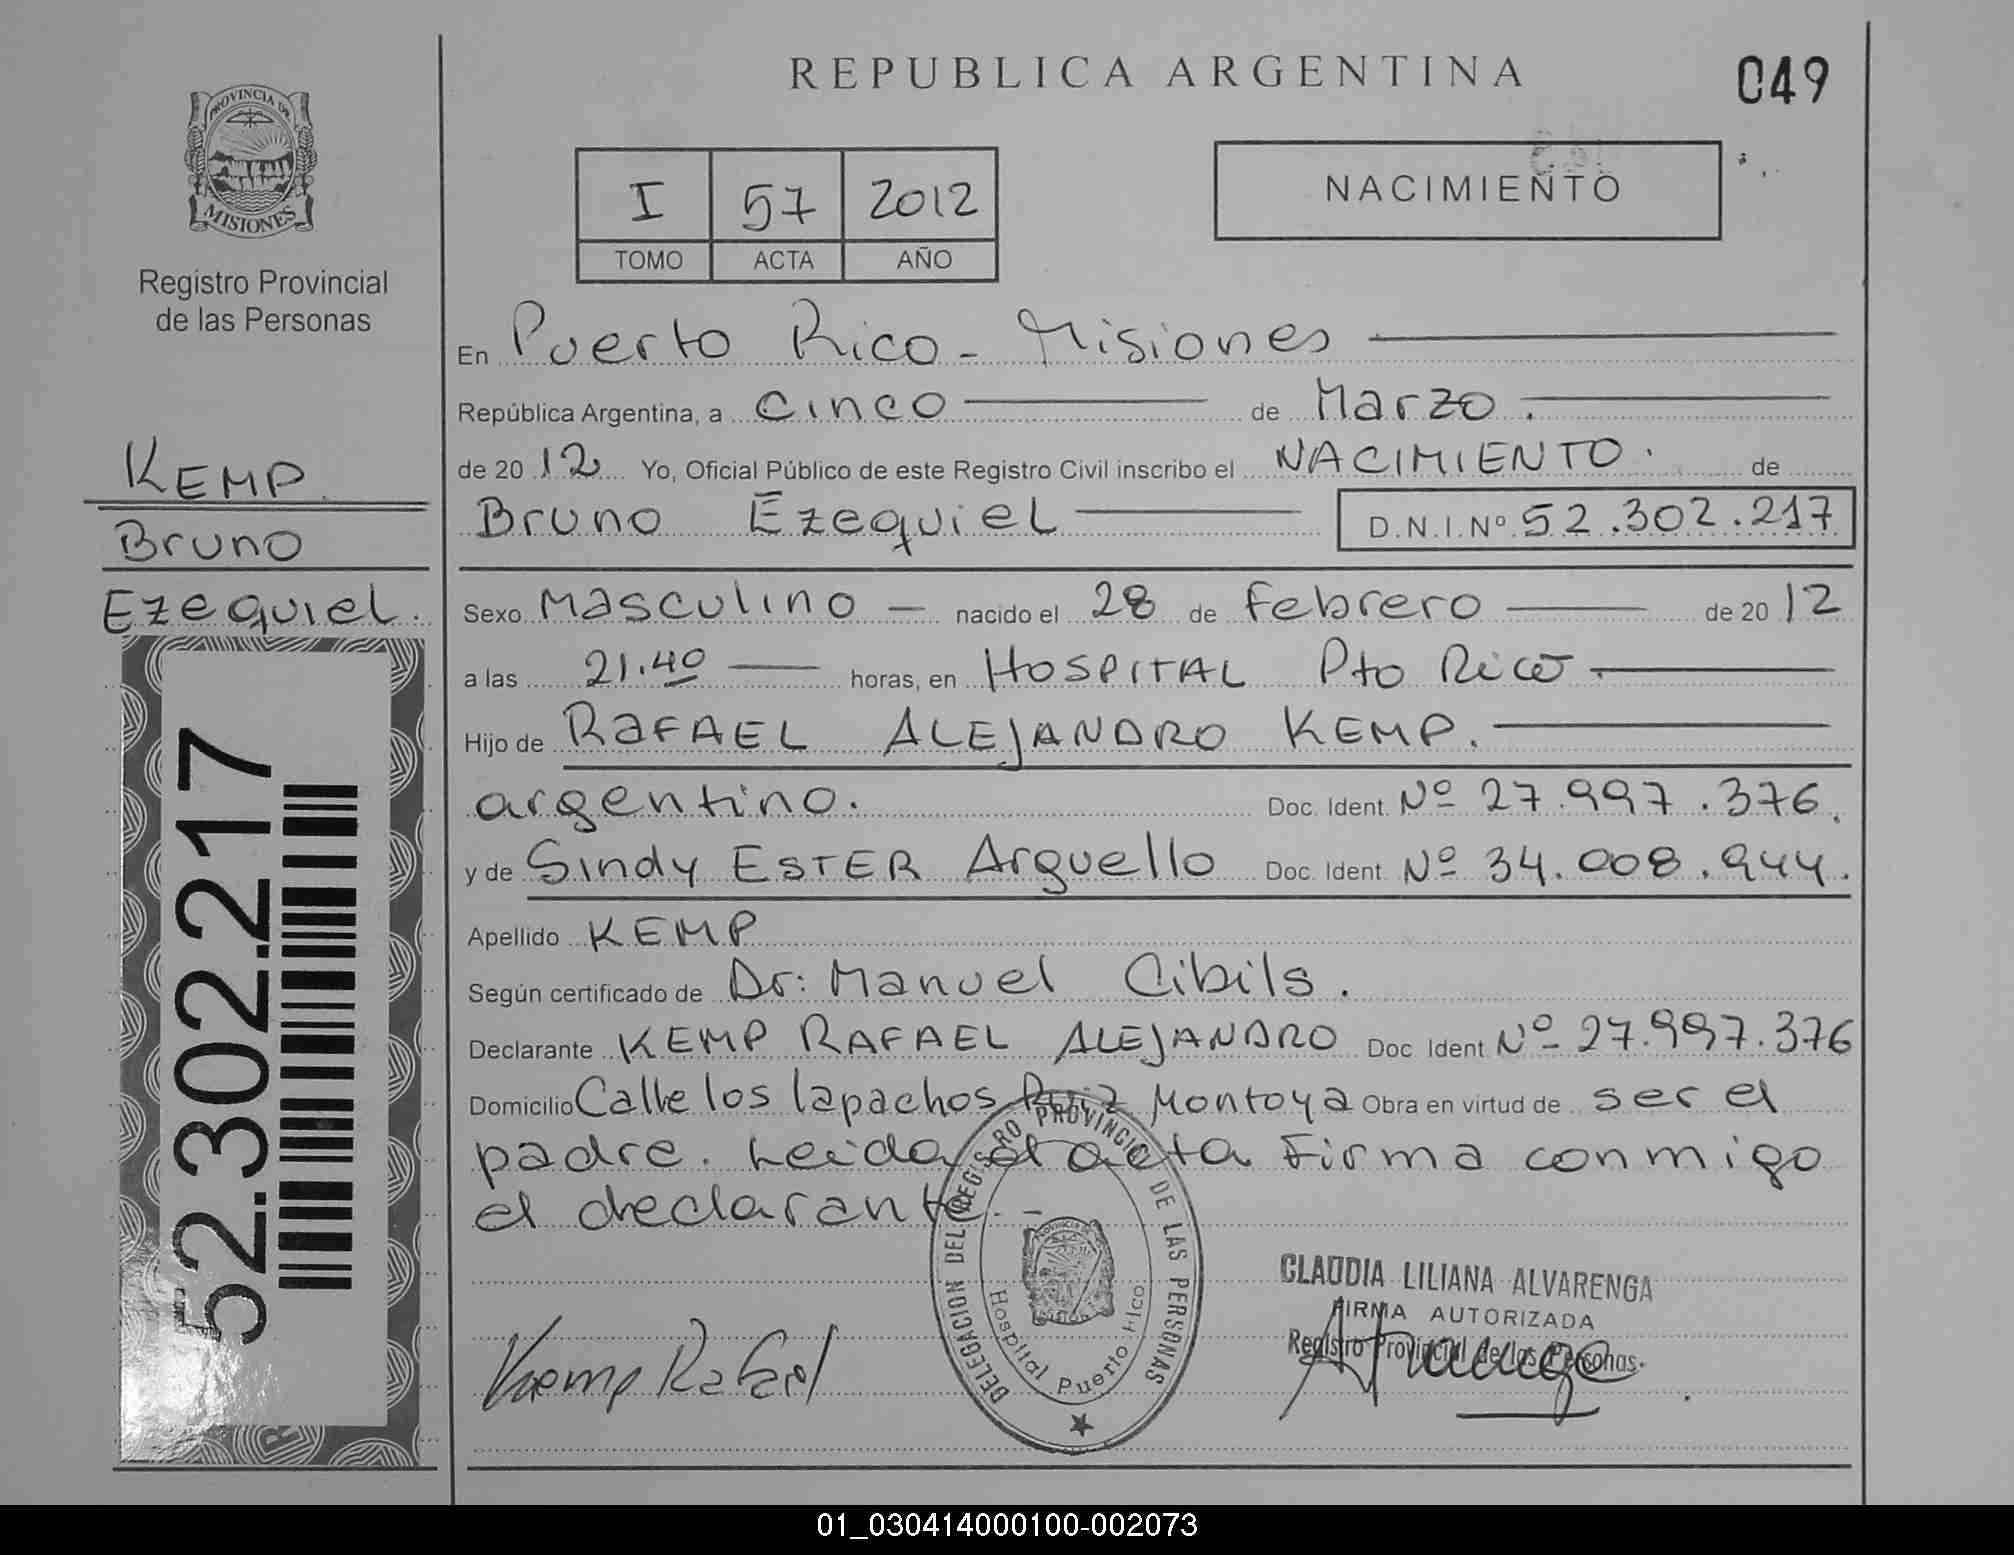 REPUBLICA ARGENTINA
049
PROVINCIA DE
MISIONES
Registro Provincial
de las Personas
I 57 2012
TOMO ACTA AÑO
NACIMIENTO
En Puerto Rico - Misiones
República Argentina, a Cinco de Marzo.
de 2012 Yo, Oficial Público de este Registro Civil inscribo el NACIMIENTO. de
Bruno Ezequiel D.N.I.Nº 52.302.217
KEMP
Bruno
Ezequiel.
52.302.217
Sexo Masculino — nacido el 28 de Febrero de 2012
a las 21.40 horas, en HOSPITAL Pto Rico
Hijo de RAFAEL ALEJANDRO KEMP.
argentino. Doc. Ident. Nº 27.997.376.
y de Sindy ESTER Arguello Doc. Ident. Nº 34.008.944.
Apellido KEMP
Según certificado de Dr: Manuel Cibils.
Declarante KEMP RAFAEL ALEJANDRO Doc. Ident Nº 27.997.376
Domicilio Calle los lapachos Ruiz Montoya Obra en virtud de ser el
padre. Leida el acta Firma conmigo
el declarante. -
DELEGACION DEL REGISTRO PROVINCIAL DE LAS PERSONAS
Hospital Puerto Rico
CLAUDIA LILIANA ALVARENGA
FIRMA AUTORIZADA
Registro Provincial de las Personas.
Kemp Rafael
01_030414000100-002073